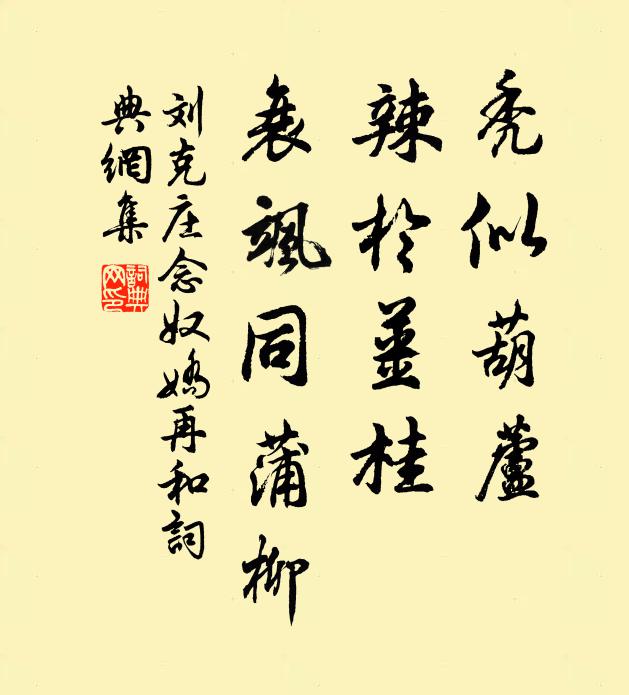 秃似葫蘆
辣於薑桂
衰颯同蒲柳
刘克庄念奴嬌再和詞
典網集
詞典
网印